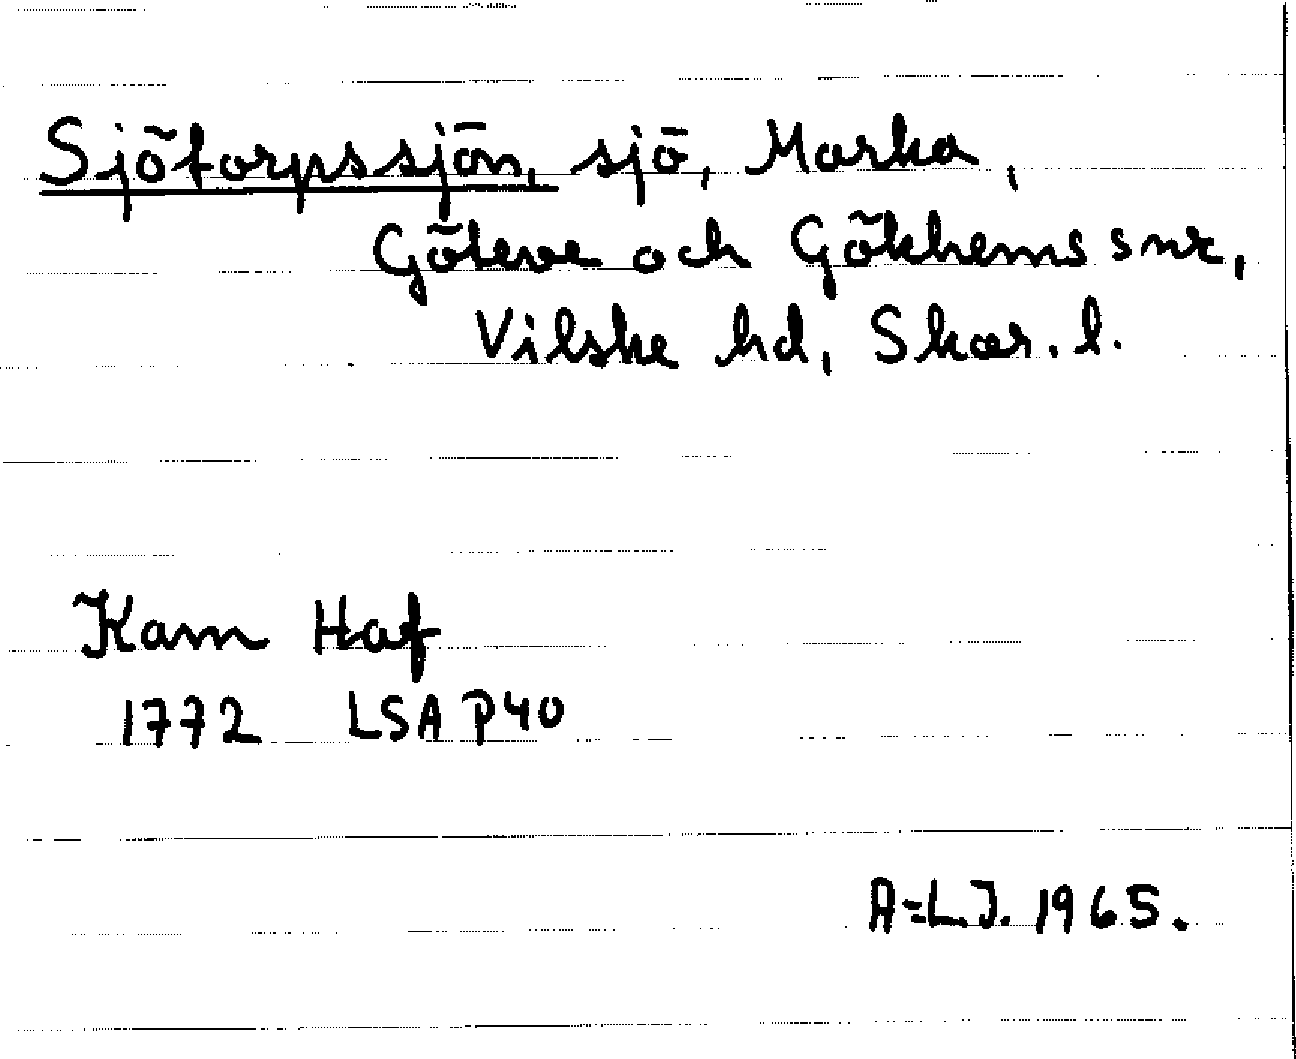 Sjötorpssjön, sjö, Marka,
Göteve och Gökhems snr,
Vilske hd, Skar. l.
Kam Haf
1772 LSA P40
A-L.J. 1965.